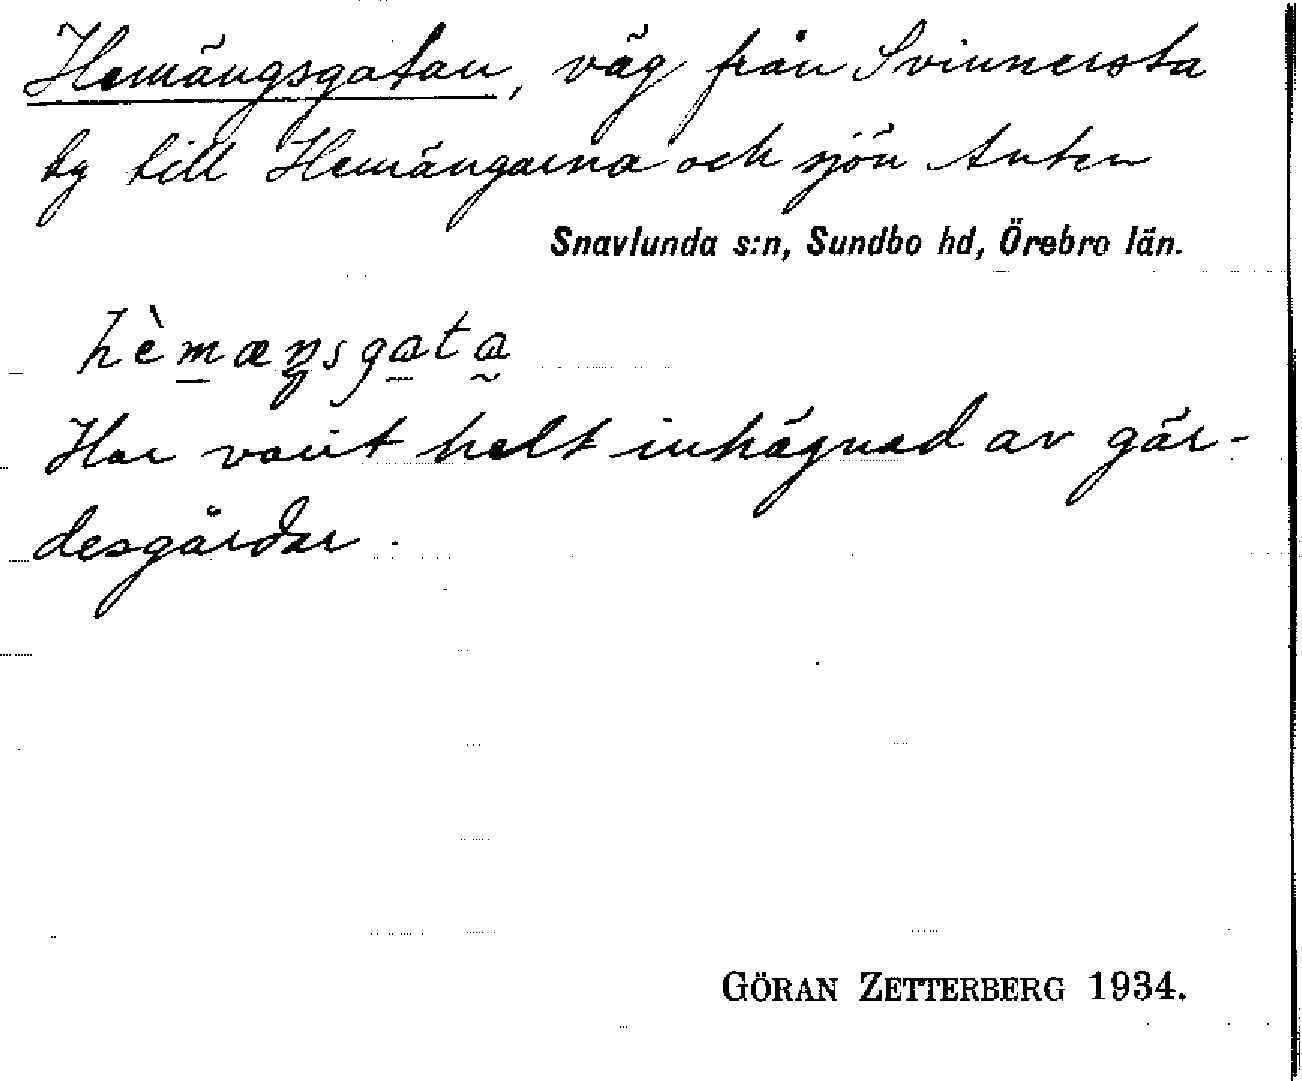 Hemängsgatan, väg från Svinnersta
by till Hemängarna och sjön Anten
Snavlunda s:n, Sundbo hd, Örebro län.
hèmæŋsgata
Har varit helt inhägnad av gär-
desgårdar.
GÖRAN ZETTERBERG 1934.